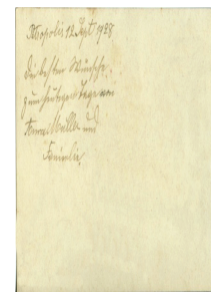 Petropolis 12. Sept 1938
Die besten Wünsche
zum heutigen Tage von
Müller und
Familie.